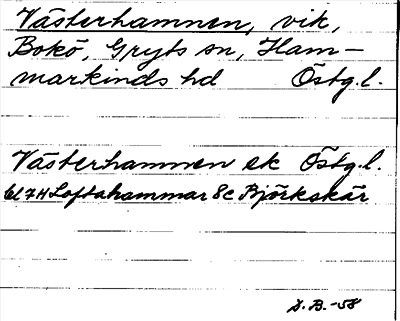 Västerhamnen, vik,
Bokö, Gryts sn, Ham-
markinds hd Östg.l.
Västerhammen ek Östg.l.
bl 7H Loftahammar 8c Björkskär
D.B.-58